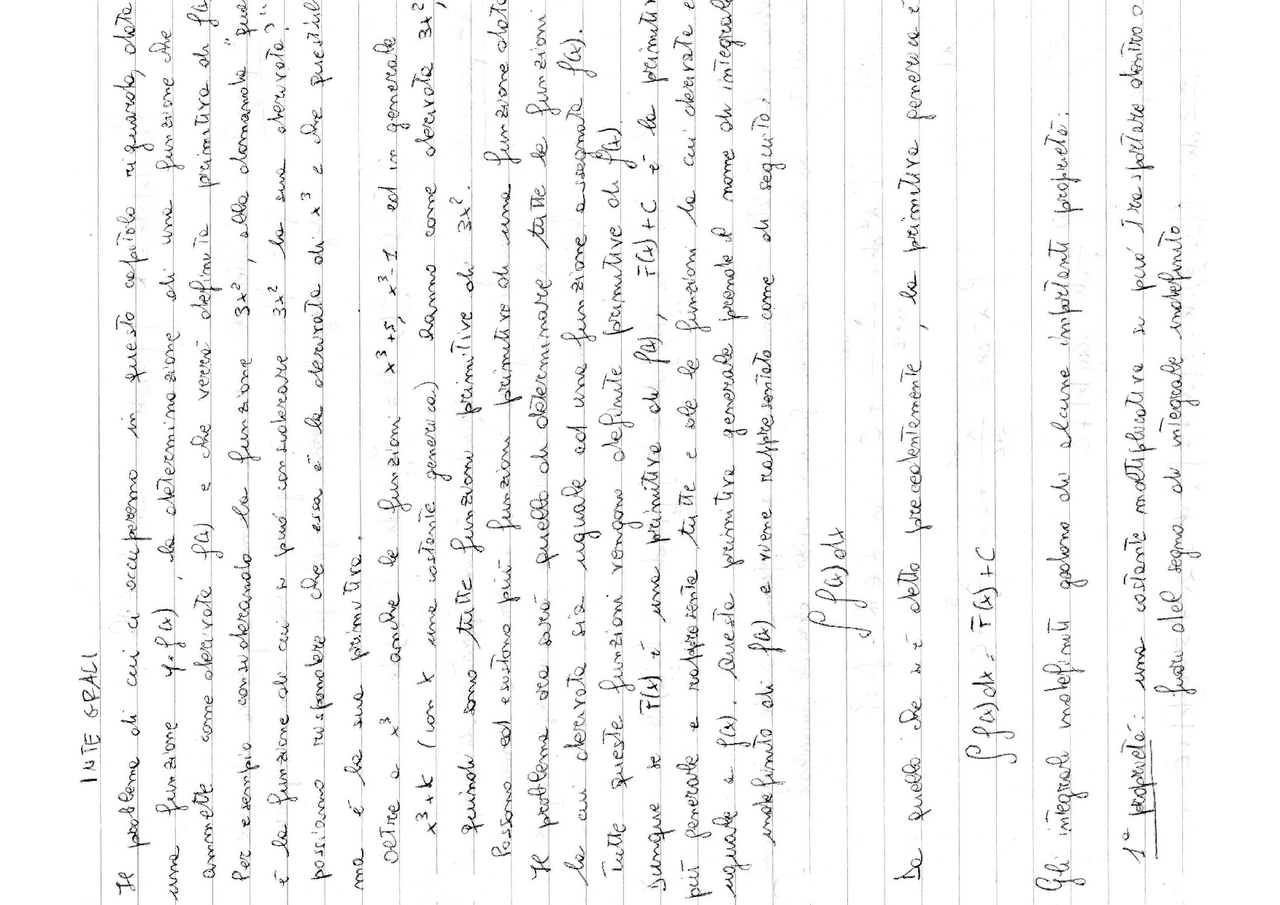 INTEGRALI
Il problema di cui ci occuperemo in questo capitolo riguarda, data
una funzione y=f(x), la determinazione di una funzione che
ammette come derivata f(x) e che verrà definita primitiva di f(x
Per esempio considerando la funzione 3x², alla domanda "qual
è la funzione di cui si può considerare 3x² la sua derivata?"
possiamo rispondere che essa è la derivata di x³ e che quest'ul
ma è la sua primitiva.
Oltre a x³ anche le funzioni x³+5, x³-1 ed in generale
x³+K (con K una costante generica) hanno come derivata 3x²,
quindi sono tutte funzioni primitive di 3x².
Possono ed esistono più funzioni primitive di una funzione data
Il problema ora sarà quello di determinare tutte le funzioni
la cui derivata sia uguale ad una funzione assegnata f(x).
Tutte queste funzioni vengono definite primitive di f(x)
Dunque se F(x) è una primitiva di f(x), F(x)+C è la primitiv
più generale e rappresenta tutte e sole le funzioni la cui derivata è
uguale a f(x). Questa primitiva generale prende il nome di integral
indefinito di f(x) e viene rappresentato come di seguito:
∫f(x)dx
Da quello che si è detto precedentemente, la primitiva generica è
∫f(x)dx = F(x)+C
Gli integrali indefiniti godono di alcune importanti proprietà:
1ª proprietà: una costante moltiplicativa si può trasportare dentro o
fuori del segno di integrale indefinito.